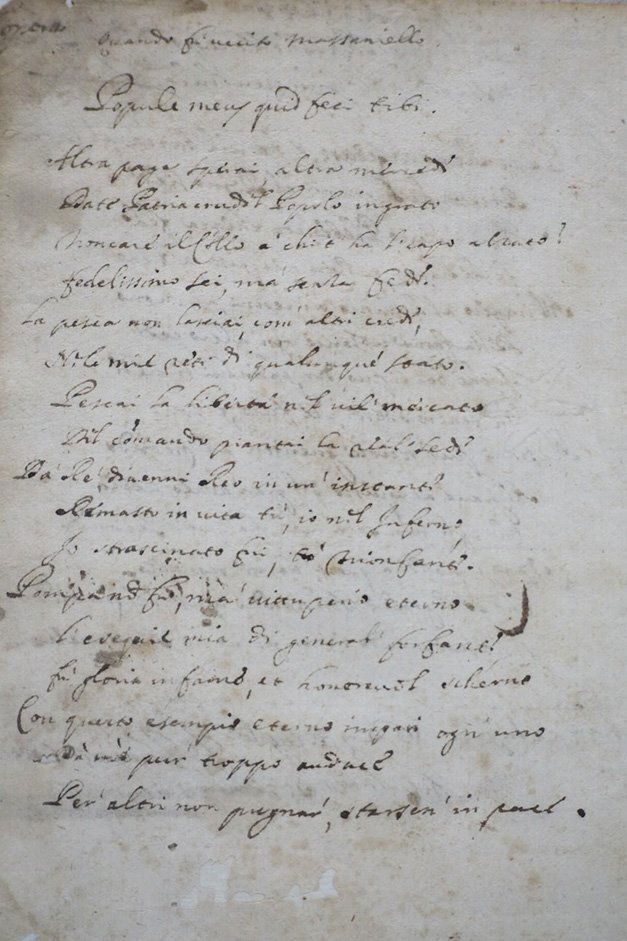 Quando fù ucciso Massaniello.
Popule meus quid feci tibi.
Altra paga sperai, altra mercedè
Patria crudèl Popolo ingrato
Troncarè il Collo à chi t' ha il capo alzato?
Fedelissimo sei, mà senza fedè.
La pesca non lasciai, com altri credè,
Nè le mie reti di qualunquè stato.
Pescai la libertà nèl vil mèrcato
Dèl comando piantai la rèal sedè
Dà Rè divenni Rèo in un' instantè
Rèmasto in vita tù, io nèl Inferno,
Io strascinato fui, tù trionfantè.
Pompa nò fù, mà vituperio eterno
L'esequiè mia di general forfantè
fù gloria infamè, et honorevol schèrno
Con questo esempio eterno impari ogn' uno
Dà mè pur troppo audacè
Per altri non pugnar, starsenè in pacè.